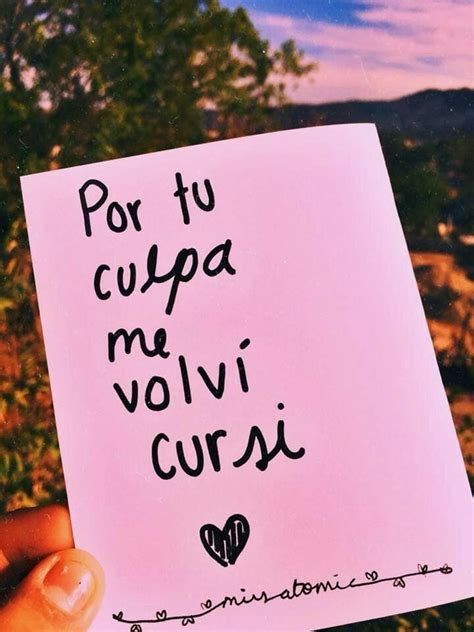 Por tu
culpa
me
volví
cursi
miss atomic